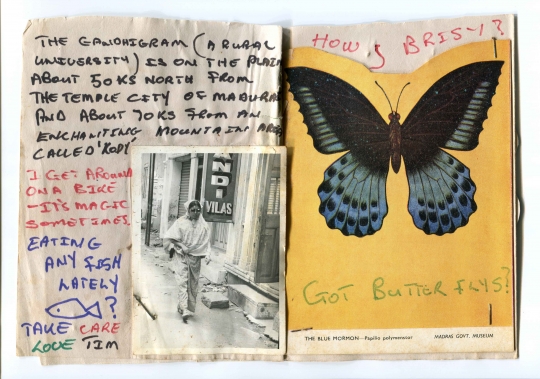 THE GANDHIGRAM (A RURAL
UNIVERSITY) IS ON THE PLAIN
ABOUT 50KS NORTH FROM
THE TEMPLE CITY OF MADURAI
AND ABOUT 70KS FROM AN
ENCHANTING MOUNTAIN AREA
CALLED 'KODY'
I GET AROUND
ON A BIKE
-IT'S MAGIC
SOMETIMES.
EATING
ANY FISH
LATELY
?
TAKE CARE
LOVE TIM
ANDI
VILAS
HOW'S BRISY?
GOT BUTTERFLYS?
THE BLUE MORMON—Papilio polymnestor
MADRAS GOVT. MUSEUM